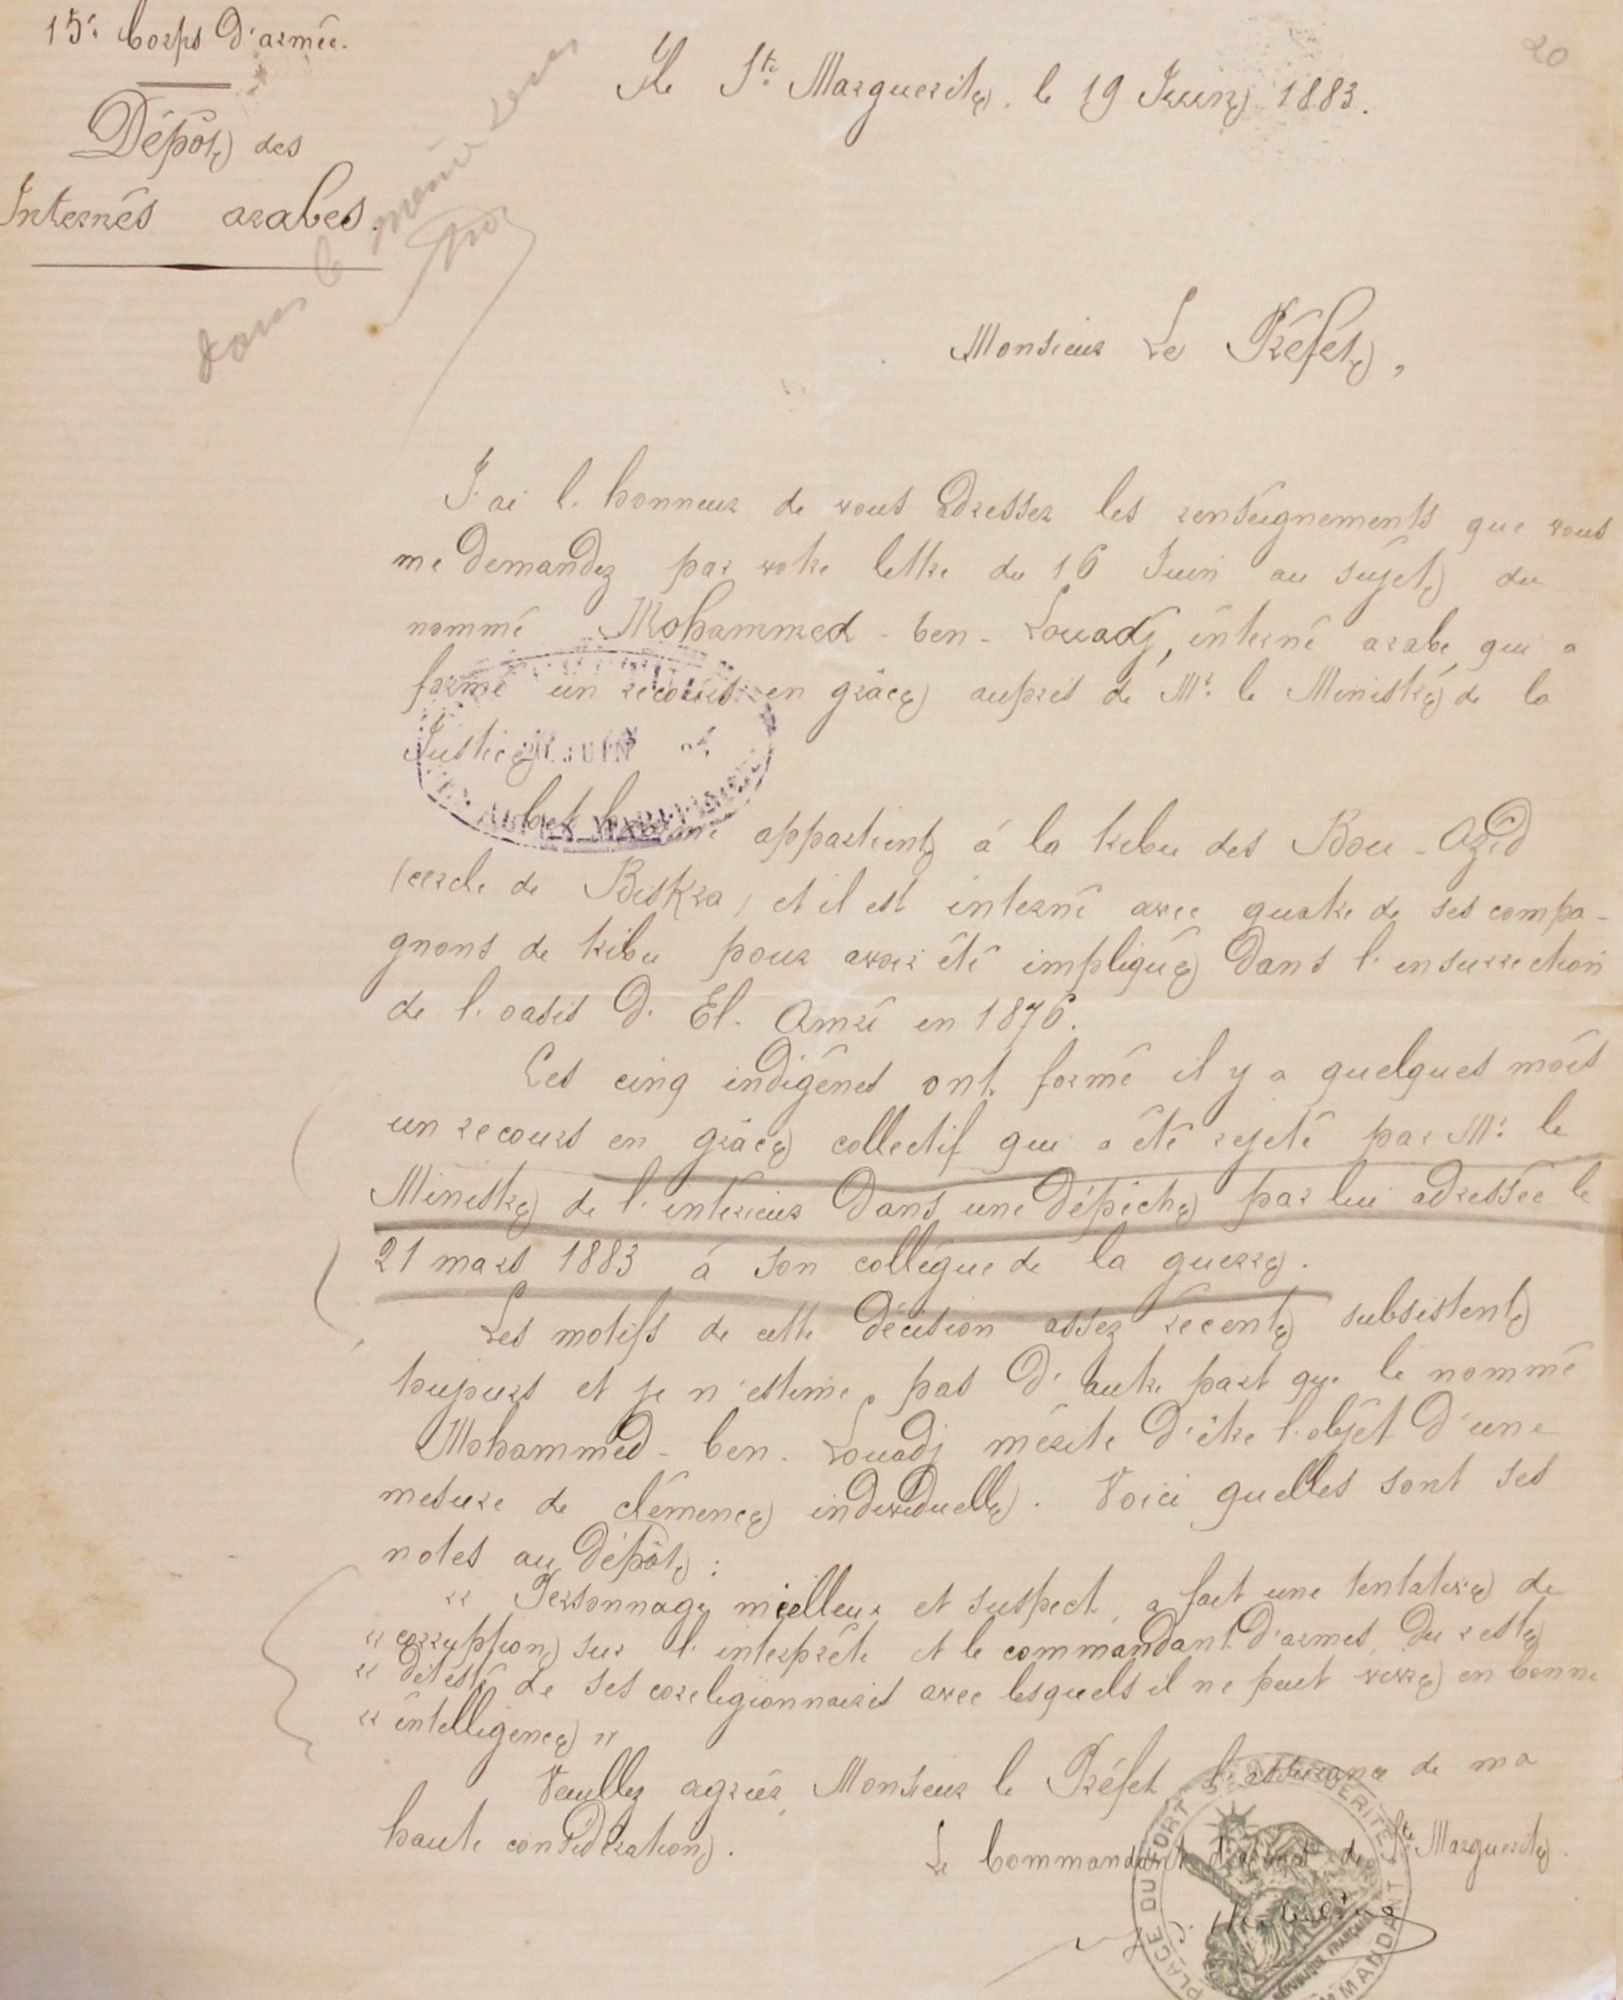 15e Corps d'armée.
Dépôt des
Internés arabes.
dans le même sens
20
Ile Ste Marguerite, le 19 Juin 1883.
Monsieur Le Préfet,
J'ai l'honneur de vous adresser les renseignements que vous
me demandez par votre lettre du 16 Juin au sujet du
nommé Mohammed-ben-Louadj, interné arabe qui a
formé un recours en grâce auprès de Mr. le Ministre de la
Justice.
JUIN
Cet appartient à la tribu des Bou-Azid
(cercle de Biskra) et il est interné avec quatre de ses compa-
gnons de tribu pour avoir été impliqué dans l'insurrection
de l'oasis d'El-Amri en 1876.
Ces cinq indigènes ont formé il y a quelques mois
un recours en grâce collectif qui a été rejeté par Mr. le
Ministre de l'intérieur dans une dépêche par lui adressée le
21 mars 1883 à son collègue de la guerre.
Les motifs de cette décision assez récente subsistent
toujours et je n'estime pas d'autre part que le nommé
Mohammed-ben-Louadj mérite d'être l'objet d'une
mesure de clémence individuelle. Voici quelles sont ses
notes au dépôt :
" Personnage mielleux et suspect, a fait une tentative de
" corruption sur l'interprète et le commandant d'armes, du reste
" détesté de ses coreligionnaires avec lesquels il ne peut vivre en bonne
" intelligence "
Veuillez agréer, Monsieur le Préfet l'assurance de ma
haute considération.
Le Commandant d'armes de Ste Marguerite.
PLACE DU FORT Ste MARGUERITE
COMMANDANT
RÉPUBLIQUE FRANÇAISE